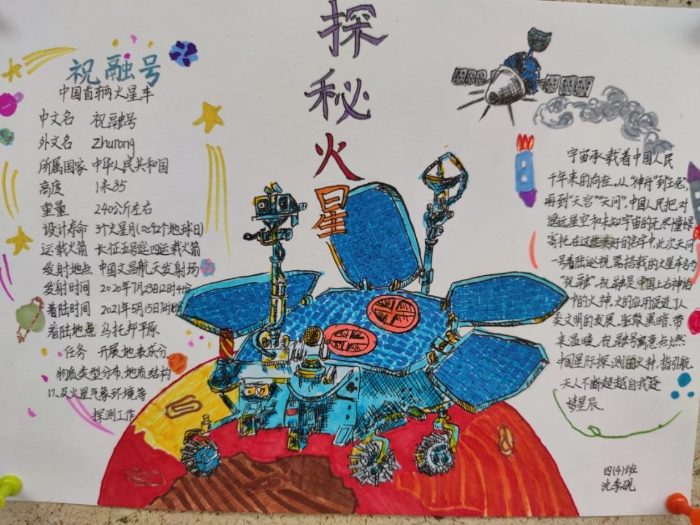 探秘火星
祝融号
中国首辆火星车
中文名 祝融号
外文名 Zhurong
所属国家 中华人民共和国
高度 1米85
重量 240公斤左右
设计寿命 3个火星月(≈92个地球日)
运载火箭 长征五号遥四运载火箭
发射地点 中国文昌航天发射场
发射时间 2020年7月23日12时41分
着陆时间 2021年5月15日
着陆地点 乌托邦平原
任务 开展地表成分
物质类型分布、地质结构
以及火星气象环境等
探测工作
宇宙承载着中国人民
千年来的向往。从"神舟"到"
再到"天宫""天问",中国人民把对
遥远星空和未知宇宙的无尽憧憬
寄托在这些美好的名字中。此次天问
一号着陆巡视器搭载的火星车名为
"祝融"。祝融是中国上古神话
中的火神,火的应用促进了人
类文明的发展,驱散黑暗、带
来温暖。祝融号寓意点燃
中国星际探测的火种,指引航
天人不断超越自我、逐
梦星辰。
四(4)班
沈李